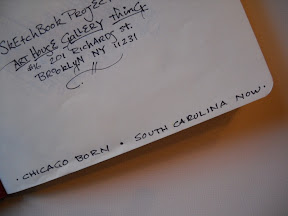 SKETCHBOOK PROJECT
ART HOUSE GALLERY
#16 201 RICHARDS ST.
BROOKLYN NY 11231
· CHICAGO BORN · SOUTH CAROLINA NOW ·